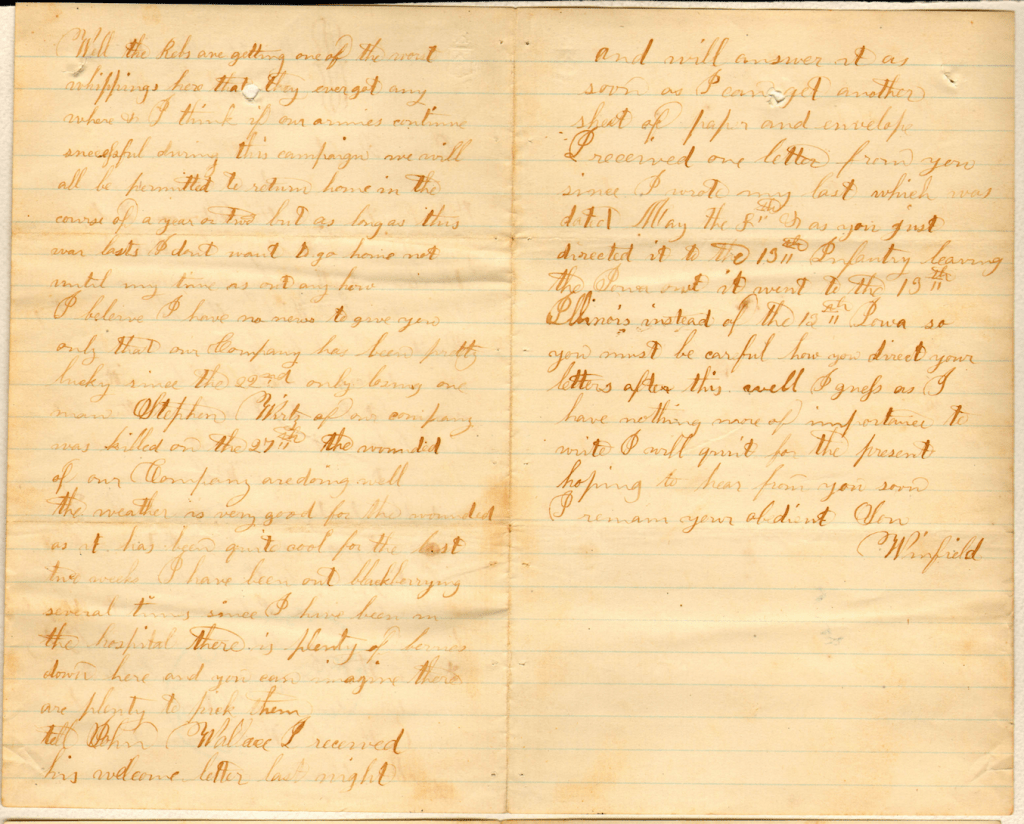 Well the Rebs are getting one of the worst
whippings here that they ever got any
where & I think if our armies continue
sucessful during this campaign we will
all be permitted to return home in the
course of a year or two but as long as this
war lasts I dont want to go home not
until my time as out any how
I beleive I have no news to give you
only that our Company has been pretty
lucky since the 22nd only losing one
man Stephen Wirtz of our company
was killed on the 27th the wounded
of our Company are doing well
the weather is very good for the wounded
as it has been quite cool for the last
two weeks I have been out blackberrying
several times since I have been in
the hospital there is plenty of berries
down here and you can imagine there
are plenty to pick them
tell John Wallace I received
his welcome letter last night
and will answer it as
soon as I can get another
sheet of paper and envelope
I received one letter from you
since I wrote my last which was
dated May the 8th & as you just
directed it to the 13th Infantry leaving
the Iowa out it went to the 13th
Illinois instead of the 13th Iowa so
you must be carful how you direct your
letters after this well I guess as I
have nothing more of importance to
write I will quit for the present
hoping to hear from you soon
I remain your obedient Son
Winfield